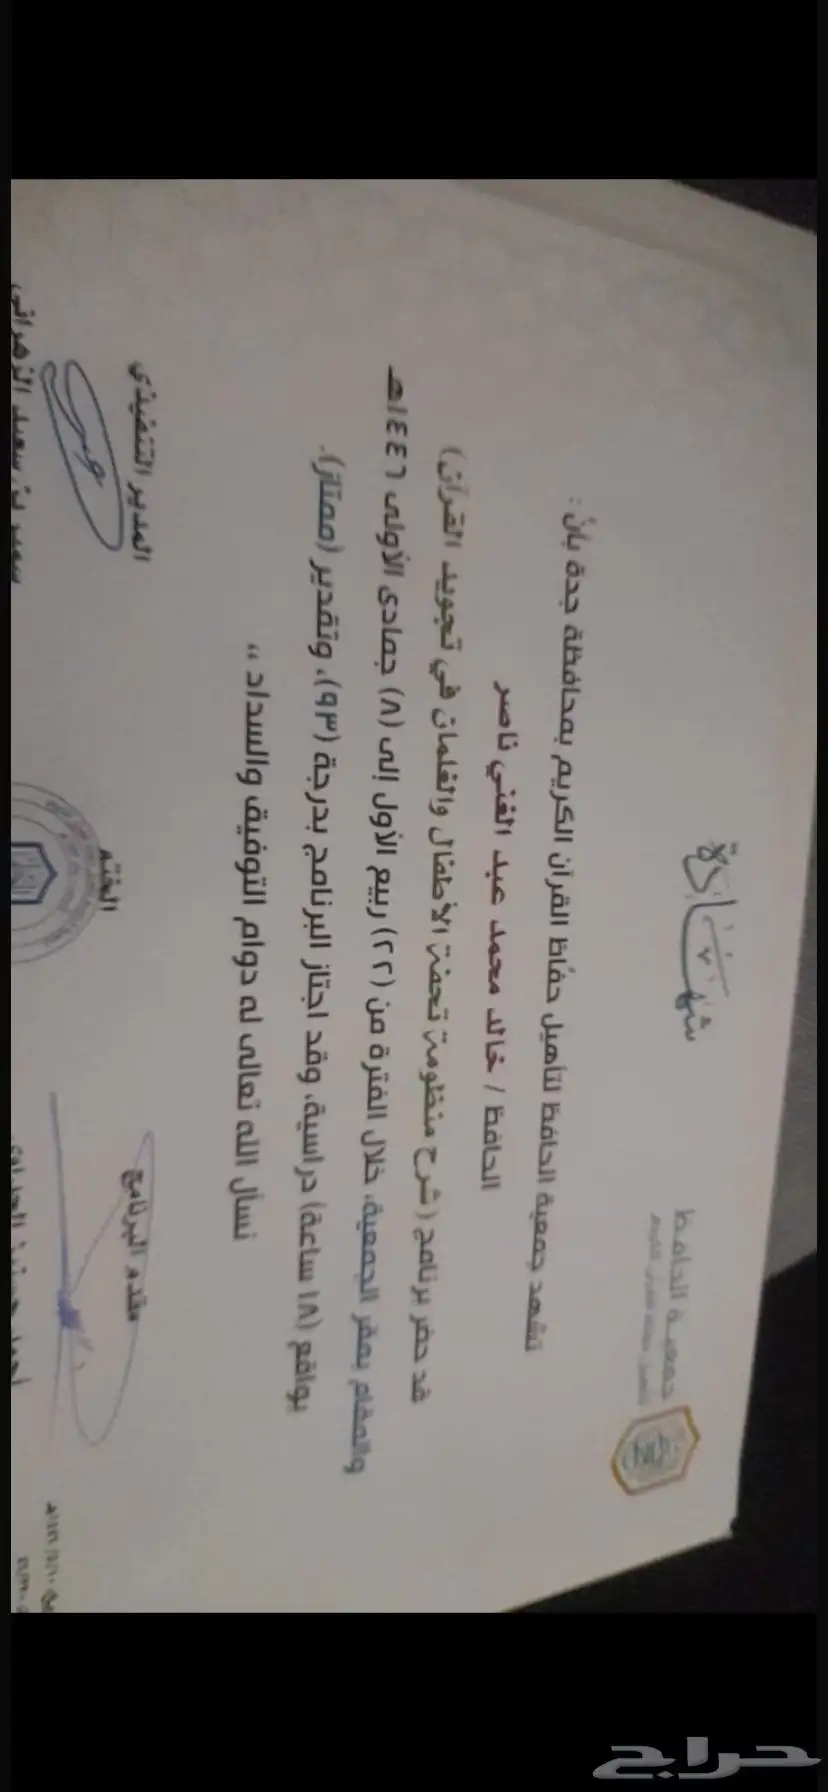 جمعية الحافظ
شهادة
تشهد جمعية الحافظ لتأهيل حفّاظ القرآن الكريم بمحافظة جدة بأن :
الحافظ / خالد محمد عبد الغني ناصر
قد حضر برنامج (شرح منظومة تحفة الأطفال والغلمان في تجويد القرآن)
والمقام بمقر الجمعية، خلال الفترة من (٢٢) ربيع الأول إلى (٨) جمادى الأولى ١٤٤٦هـ
بواقع (١٨ ساعة) دراسية، وقد اجتاز البرنامج بدرجة (٩٣)، وتقدير (ممتاز).
نسأل الله تعالى له دوام التوفيق والسداد ،،
مقدم البرنامج
الختم
المدير التنفيذي
بن سعيد الزهراني
حراج